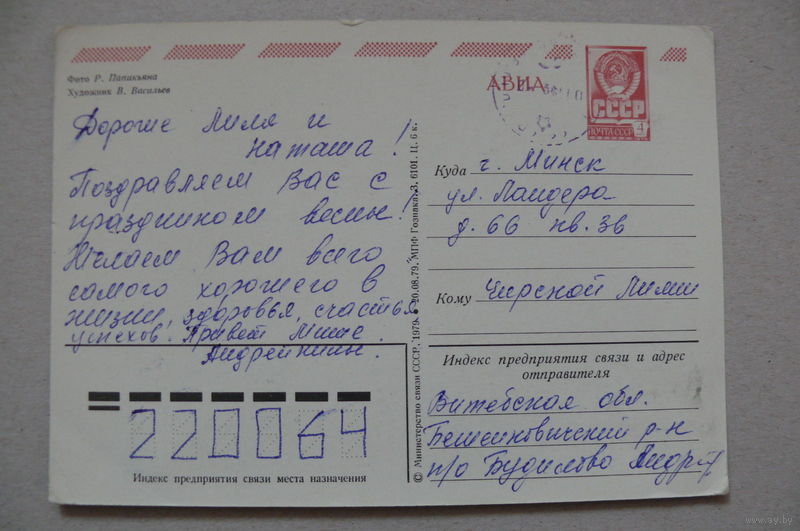 Фото Р. Папикьяна
Художник В. Васильев
АВИА
СССР
ПОЧТА СССР
4
Дорогие Лиля и
Наташа!
Поздравляем Вас с
праздником весны!
Желаем Вам всего
самого хорошего в
жизни, здоровья, счастья
успехов. Привет Мише.
Андрейкины.
© Министерство связи СССР. 1979. 20.08.79. МПФ Гознака. З. 6101. Ц. 6 к.
Куда г. Минск
ул. Ландера
д. 66 кв. 36
Кому Чирской Лилии
Индекс предприятия связи и адрес
отправителя
Витебская обл.
Бешенковичский р-н
п/о Будилово
220064
Индекс предприятия связи места назначения
www.ay.by